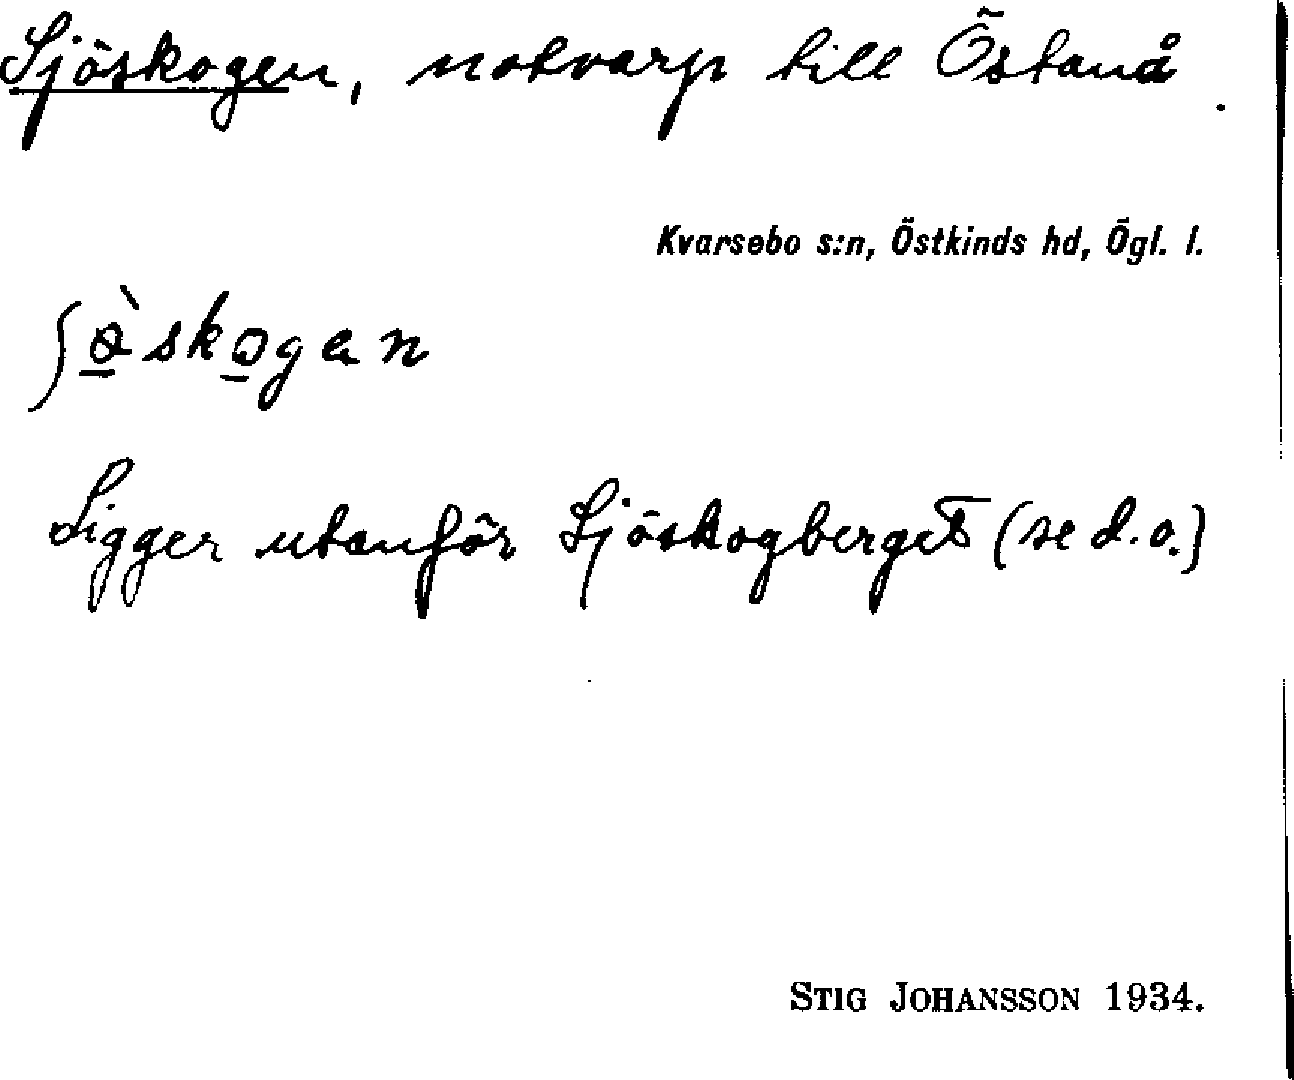 Sjöskogen, notvarp till Östanå.
Kvarsebo s:n, Östkinds hd, Ögl. l.
ʃø̠̀sko̠gen
Ligger utanför Sjöskogberget (se d.o.)
STIG JOHANSSON 1934.